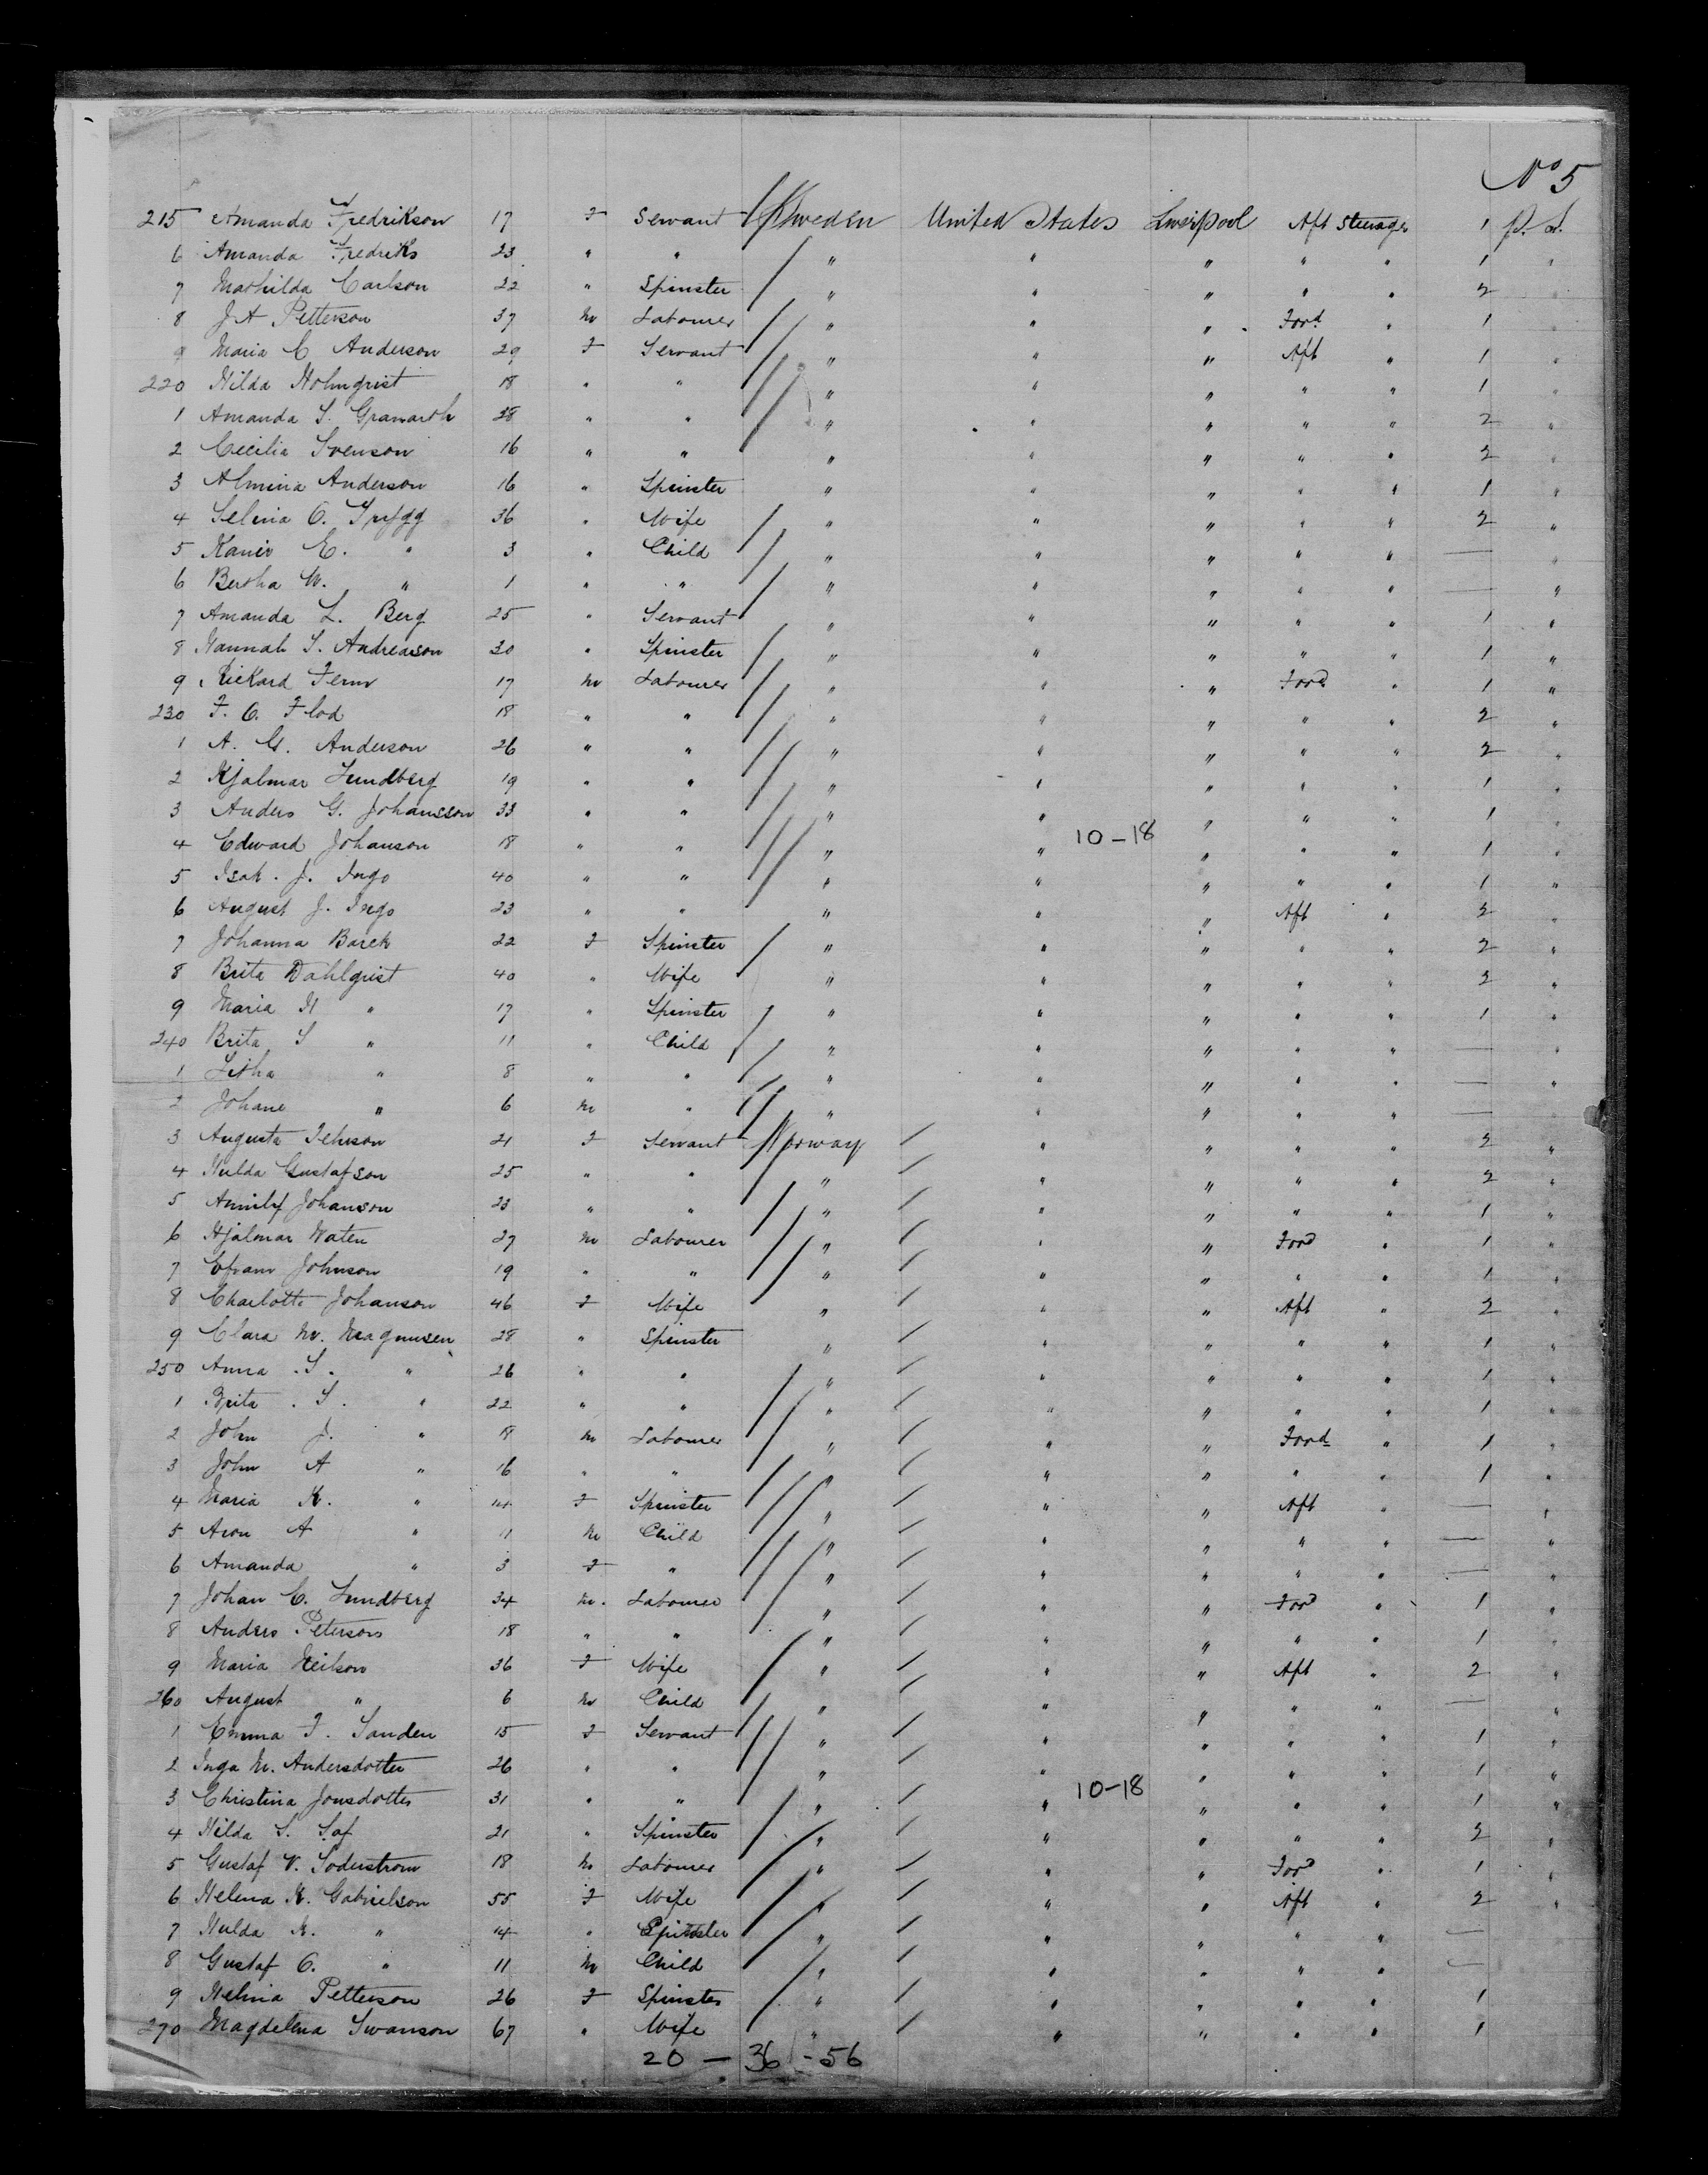 No 5
215 Amanda Fredrikson 17 F Servant Sweden United States Liverpool Aft Steerage 1 P. d.
6 Amanda Fredriks 23 " " " " " " " 1 "
7 Mathilda Carlson 22 " Spinster " " " " " 2 "
8 J A Petterson 37 M Labourer " " " Ford " 1 "
9 Maria C Anderson 29 F Servant " " " Aft " 1 "
220 Hilda Holmqrist 18 " " " " " " " 1 "
1 Amanda S. Granarth 28 " " " " " " " 2 "
2 Cecilia Svenson 16 " " " " " " " 2 "
3 Almina Anderson 16 " Spinster " " " " " 1 "
4 Selina C. 36 " Wife " " " " " 2 "
5 E. " 3 " Child " " " " " — "
6 Bertha W. " 1 " " " " " " " — "
7 Amanda L. Berg 25 " Servant " " " " " 1 "
8 Hannah S. Andreason 30 " Spinster " " " " " 1 "
9 Rickard Ferm 17 M Labourer " " " Ford " 1 "
230 F. O. Flod 18 " " " " " " " 2 "
1 A. G. Anderson 26 " " " " " " " 2 "
2 Hjalmar Lundberg 19 " " " " " " " 1 "
3 Anders G. Johansson 33 " " " " " " " 1 "
4 Edward Johanson 18 " " " " 10-18 " " " 1 "
5 Isak. J. Ingo 40 " " " " " " " 1 "
6 August J. Ingo 23 " " " " " Aft " 2 "
7 Johanna Barck 22 F Spinster " " " " " 2 "
8 Brita Dahlqrist 40 " Wife " " " " " 2 "
9 Maria H " 17 " Spinster " " " " " 1 "
240 Brita S " 11 " Child " " " " " — "
1 " 8 " " " " " " " — "
2 Johane " 6 M " " " " " " — "
3 Augusta 21 F Servant Norway " " " " 2 "
4 Hulda Gustafson 25 " " " " " " " 2 "
5 Johanson 23 " " " " " " " 1 "
6 Hjalmar Waten 27 M Labourer " " " Ford " 1 "
7 Efram Johnson 19 " " " " " " " 1 "
8 Charlotte Johanson 46 F Wife " " " Aft " 2 "
9 Clara M. Magnusen 28 " Spinster " " " " " 1 "
250 Anna .S. " 26 " " " " " " " 1 "
1 Brita . S. " 22 " " " " " " " 1 "
2 John J. " 18 M Labourer " " " Ford " 1 "
3 John A " 16 " " " " " " " 1 "
4 Maria K. " 14 F Spinster " " " Aft " — "
5 Aron A " 11 M Child " " " " " — "
6 Amanda " 3 F " " " " " " — "
7 Johan C. Lundberg 34 M. Labourer " " " Ford " 1 "
8 Anders Peterson 18 " " " " " " " 1 "
9 Maria Neilson 36 F Wife " " " Aft " 2 "
260 August " 6 M Child " " " " " — "
1 Emma F. Sanden 15 F Servant " " " " " 1 "
2 Inga M. Andersdotter 26 " " " " " " " 1 "
3 Christina Jonsdotter 31 " " " " 10-18 " " " 1 "
4 Hilda S. 21 " Spinster " " " " " 2 "
5 Gustaf V. Soderstrom 18 M Labourer " " " Ford " 1 "
6 Helena K. Gabrielson 55 F Wife " " " Aft " 2 "
7 Hulda K. " 14 " Spinster " " " " " —
8 Gustaf O. " 11 M Child " " " " " —
9 Helina Petterson 26 F Spinster " " " " " 1
270 Magdelena Swanson 67 " Wife " " " " " 1
20 — 36 - 56